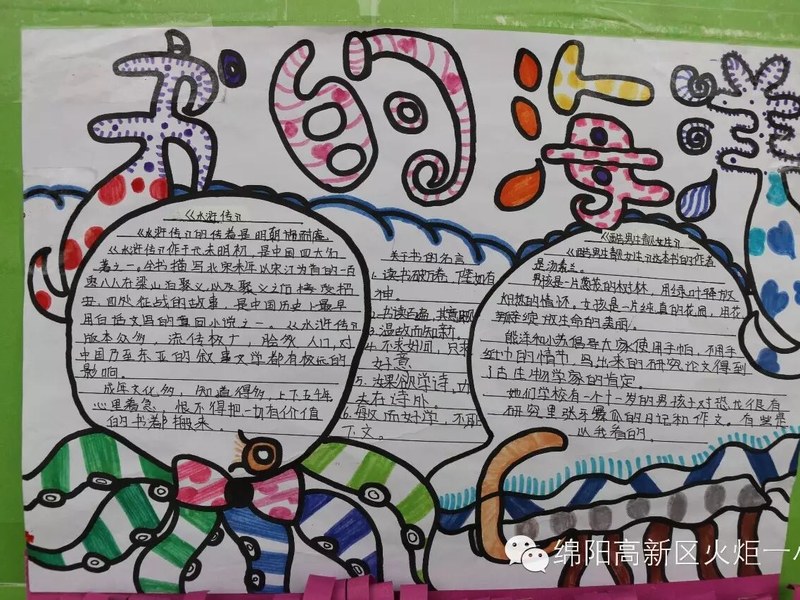 书的海洋
《水浒传》
《水浒传》的传者是明朝施耐庵。
《水浒传》作于元末明初，是中国四大名
著之一。全书描写北宋末年以宋江为首的一百
零八人在梁山
四处征战的故事，是中国历史上最早
用白话文写的章回小说之一。《水浒传》
版本众多，流传极广，脍炙人口，对
中国乃至东亚的叙事文学都有极远的
影响。
成年文化多，知道得多，上下五千年
心里着急，恨不得把一切有价值
的书都搬来。
关于书的名言
1.读书破万卷，下笔如有
神。
2.书读百遍，其意自现
3.温故而知新
4.不求好问，只
好意
5.汝果欲学诗，功
夫在诗外。
6.敏而好学，不耻
下文。
《酷男生靓女生》
《酷男生靓女生》这本书的作者
男孩是一片葱茏的树林，用绿叶释放
如燃的情怀。女孩是一片纯真的花圃，用花
绽放生命的美丽。
能洋和小苏倡导大家使用手帕，不用手
纸巾的情节，写出来的研究论文得到
了古生物学家的肯定。
她们学校有一个十一岁的男孩子对恐龙很有
研究里张牙舞爪的日记和作文。有些是
以我看的。
绵阳高新区火炬一小